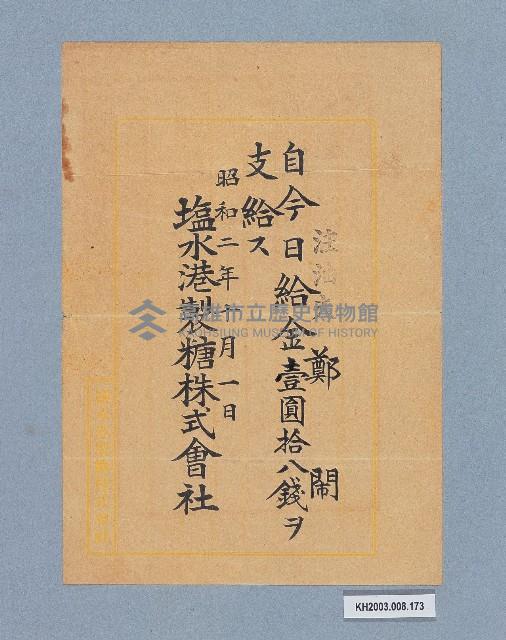 注油方
鄭鬧
自今日給金壹圓拾八錢ヲ
支給ス
昭和二年十月一日
塩水港製糖株式會社
高雄市立歷史博物館
KAOHSIUNG MUSEUM OF HISTORY
KH2003.008.173